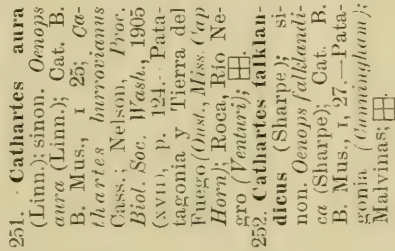 251. Cathartes aura
(Linn.); sinon. Oenops
aura (Linn.); Cat. B.
B. Mus., I 25; Ca-
thartes burrovianus
Cass.; Nelson, Proc.
Biol. Soc. Wash., 1905
(XVIII, p. 124.—Pata-
tagonia y Tierra del
Fuego (Oust., Miss. Cap
Horn); Roca, Río Ne-
gro (Venturi); ⊞.
252. Cathartes falklan-
dicus (Sharpe); si-
non. Oenops falklandi-
ca (Sharpe); Cat. B.
B. Mus., I, 27.—Pata-
gonia (Cunningham);
Malvinas; ⊞.